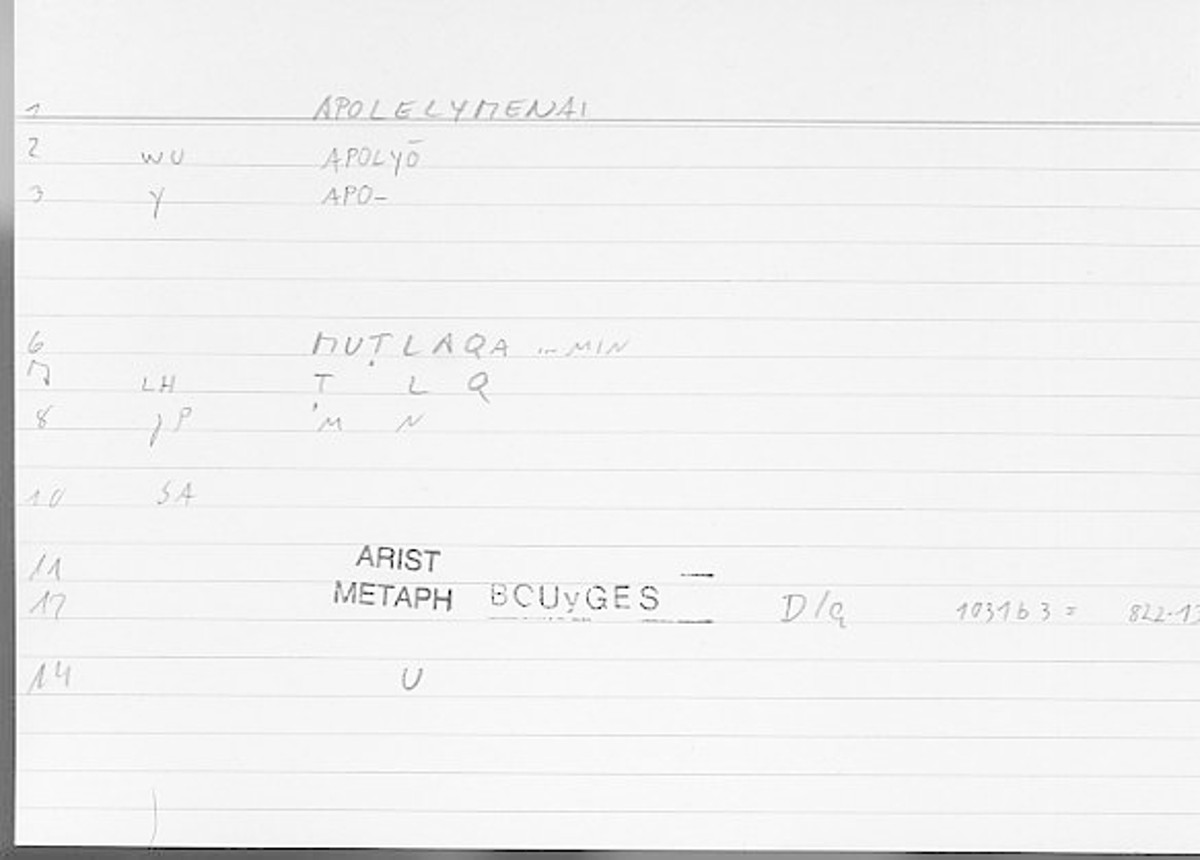 1 APOLELYMENAI
2 WU APOLYŌ
3 Y APO-
6 MUṬLAQA ... MIN
7 LH Ṭ L Q
8 P M N
10 SA
11 ARIST
12 METAPH BOUyGES D/q 1031b3 = 822.13
14 U